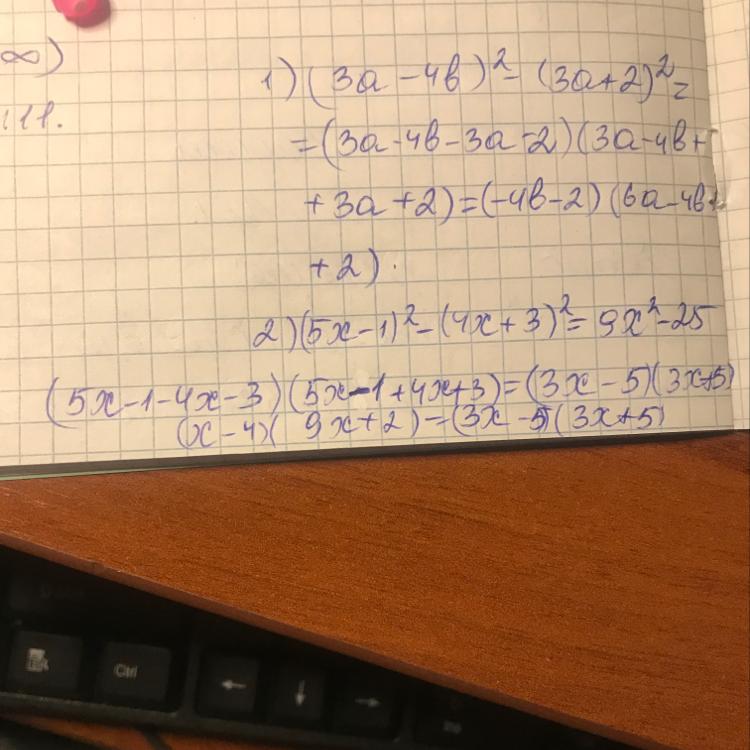 ∞)
:11.
1) (3a - 4b)² - (3a+2)² =
= (3a - 4b - 3a - 2)(3a - 4b +
+ 3a + 2) = (-4b - 2)(6a - 4b +
+ 2).
2) (5x - 1)² - (4x + 3)² = 9x² - 25
(5x - 1 - 4x - 3)(5x - 1 + 4x + 3) = (3x - 5)(3x + 5)
(x - 4)(9x + 2) = (3x - 5)(3x + 5)
Ctrl
←
↓
→